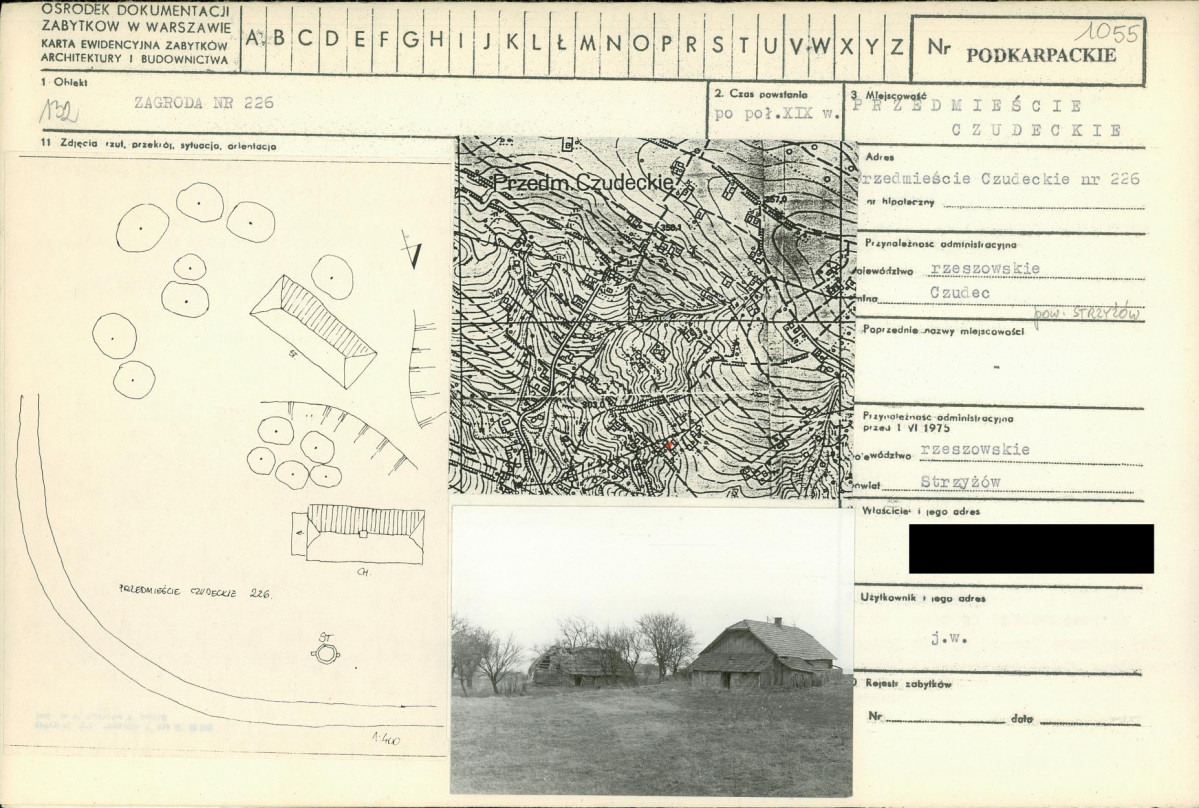 OŚRODEK DOKUMENTACJI
ZABYTKÓW W WARSZAWIE
KARTA EWIDENCYJNA ZABYTKÓW
ARCHITEKTURY I BUDOWNICTWA
A B C D E F G H I J K L Ł M N O P R S T U V W X Y Z
Nr
1055
PODKARPACKIE
1 Obiekt
132
ZAGRODA NR 226
2. Czas powstania
po poł.XIX w.
3 Miejscowość
PRZEDMIEŚCIE
CZUDECKIE
11 Zdjęcia rzut, przekrój, sytuacja, orientacja
Adres
rzedmieście Czudeckie nr 226
nr hipoteczny
Przynależność administracyjna
ojewództwo rzeszowskie
mina Czudec
pow. STRZYŻÓW
Poprzednie nazwy miejscowości
-
Przynależność administracyjna
przed 1 VI 1975
ojewództwo rzeszowskie
owiat Strzyżów
Właściciel i jego adres
Użytkownik i jego adres
j.w.
Rejestr zabytków
Nr data
Przedm. Czudeckie
357,0
358,1
ST
CH.
PRZEDMIEŚCIE CZUDECKIE 226.
ST
1:400